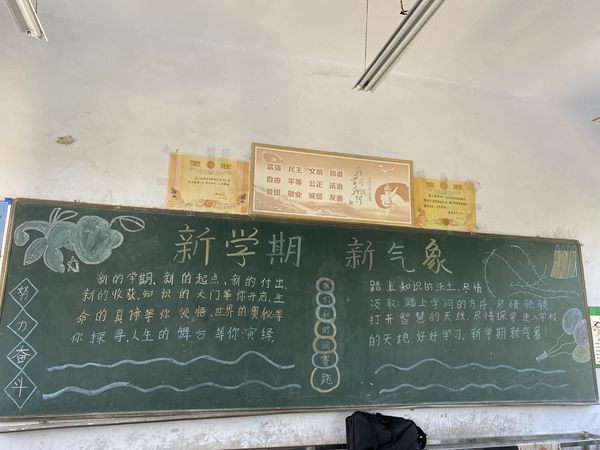 奖状
富强 民主 文明 和谐
自由 平等 公正 法治
爱国 敬业 诚信 友善
新学期 新气象
努力奋斗
新的学期,新的起点,新的付出,
新的收获,知识的大门等你开启,生
命的真谛等你领悟,世界的奥秘等
你探寻,人生的舞台等你演绎.
我和时间赛跑
踏上知识的沃土,尽情
汲取;踏上学问的方舟,尽情驰骋
打开智慧的天线,尽情探索走入学校
的天地,好好学习,新学期新气象!